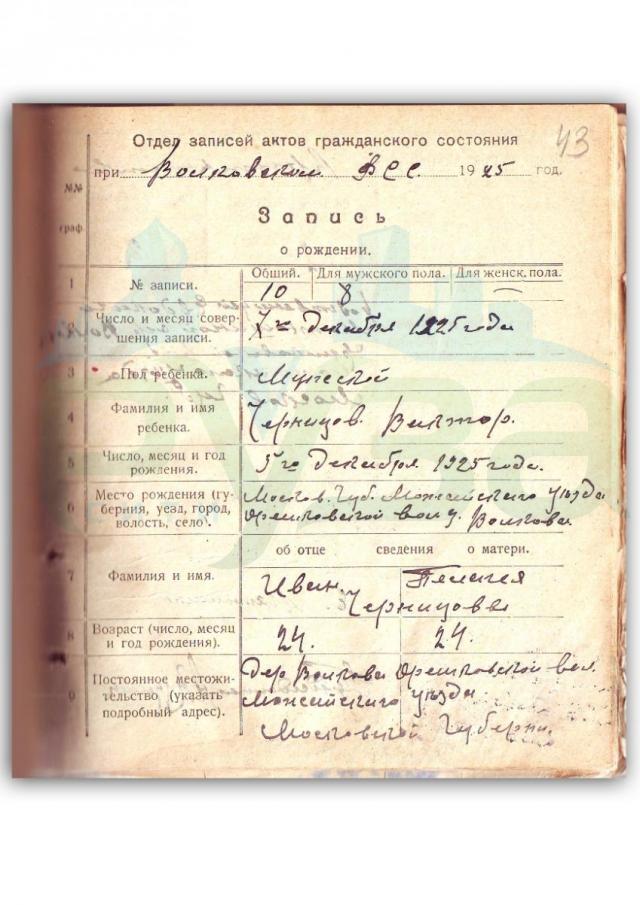 43
Отдел записей актов гражданского состояния
при Волковском 1925 год.
№№ граф.
Запись
о рождении.
Общий. Для мужского пола. Для женск. пола.
1 № записи. 10 8 —
Число и месяц совер-
шения записи. 7го декабря 1925 года
3 Пол ребенка. Мужской
4 Фамилия и имя
ребенка. Черницов Виктор.
5 Число, месяц и год
рождения. 5го декабря 1925 года.
6 Место рождения (гу-
берния, уезд, город,
волость, село). Москов. Губ. Можайского уезда
вол д. Волково
об отце сведения о матери.
7 Фамилия и имя. Иван. Пелагея
Черницовы
8 Возраст (число, месяц
и год рождения). 24. 24.
9 Постоянное местожи-
тельство (указать
подробный адрес). Дер Волкова вол.
Можайского уезда
Московской Губерни.